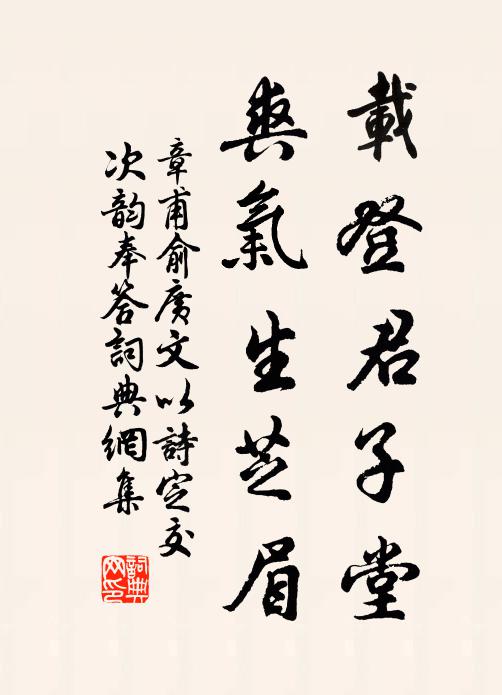 載登君子堂
爽氣生芝眉
章甫俞廣文以詩定交
次韵奉答詞典網集
詞典网印